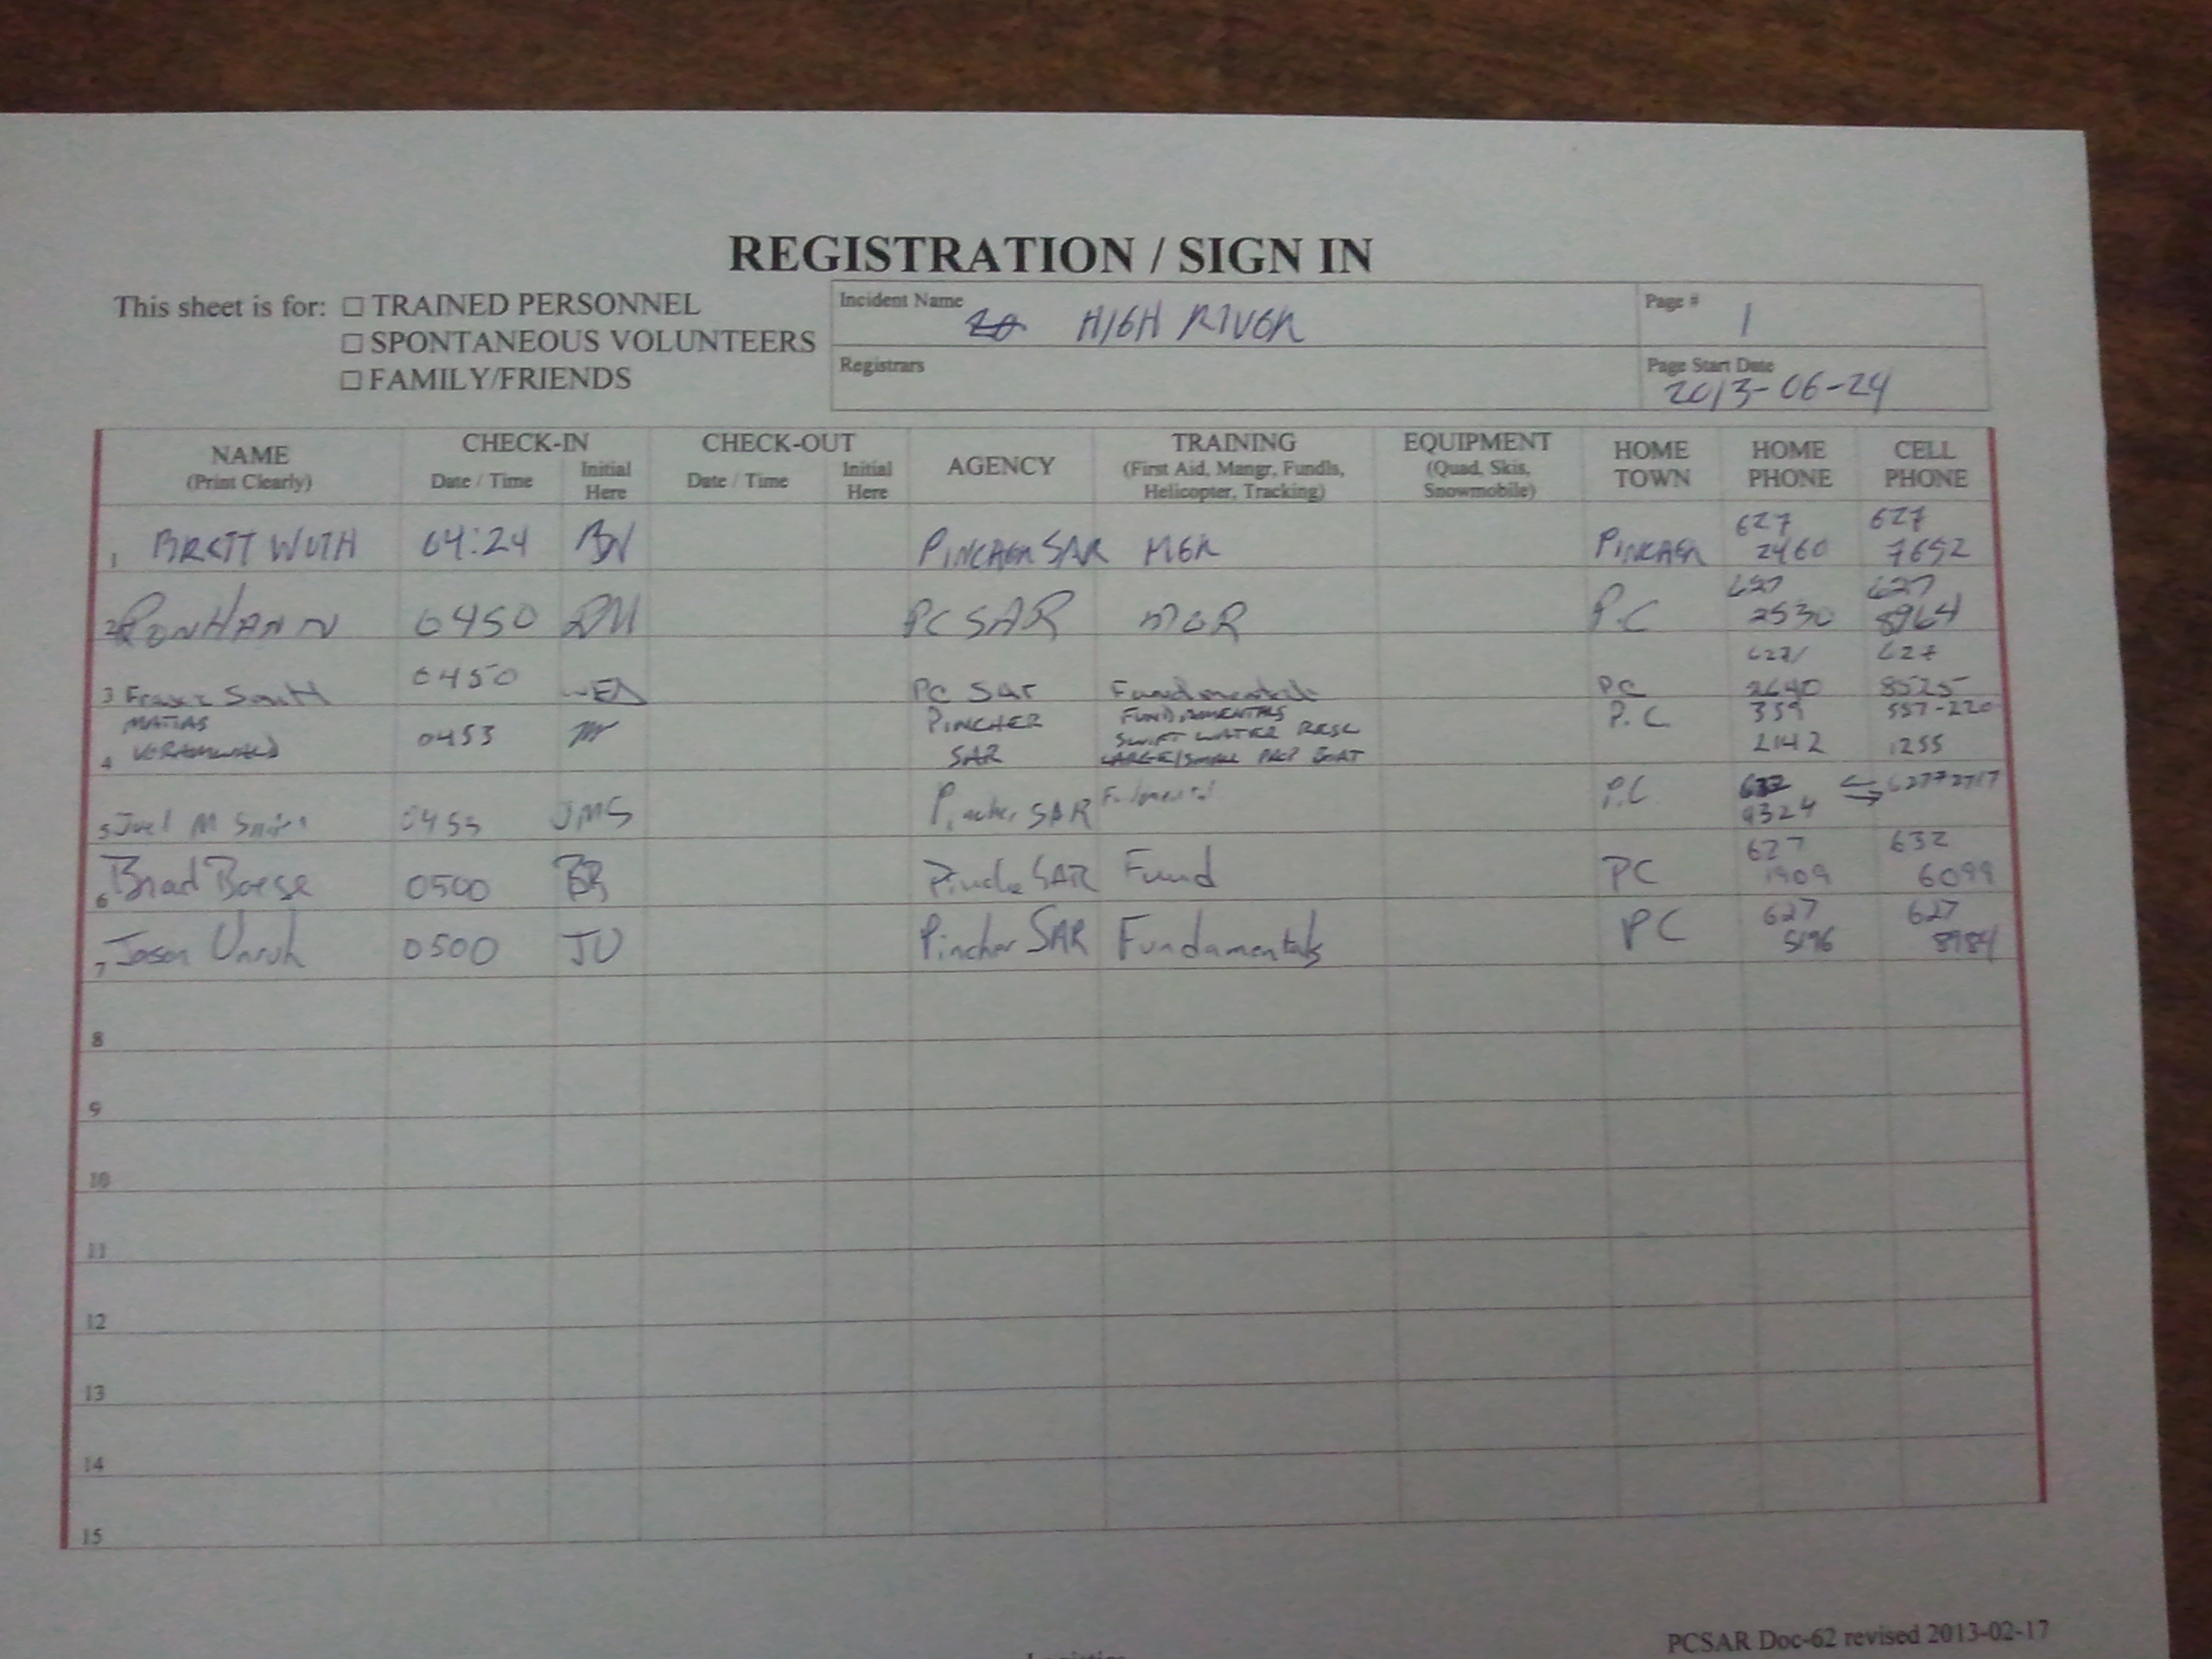 REGISTRATION / SIGN IN
This sheet is for: ☐ TRAINED PERSONNEL
☐ SPONTANEOUS VOLUNTEERS
☐ FAMILY/FRIENDS
Incident Name HIGH RIVER
Page # 1
Registrars
Page Start Date 2013-06-24
NAME (Print Clearly) CHECK-IN Date / Time Initial Here CHECK-OUT Date / Time Initial Here AGENCY TRAINING (First Aid, Mangr, Fundls, Helicopter, Tracking) EQUIPMENT (Quad, Skis, Snowmobile) HOME TOWN HOME PHONE CELL PHONE
1 BRETT WUTH 04:24 BW PINCHER SAR MGR PINCHER 627 2460 627 7652
2 RON HANN 0450 PC SAR MGR P.C 627 2530 627 8964
3 0450 PC Sar Fundamentals PC 627 2640 627 8525
4 MATIAS 0453 PINCHER SAR FUNDAMENTALS SWIFT WATER RESC LARGE/SMALL PROP BOAT P.C 2142 1255
5 Joel M JMS Pincher SAR P.C 9324
6 Brad Boese 0500 BB Pincher SAR Fund PC 627 1909 632 6099
7 Jason Unruh 0500 JU Pincher SAR Fundamentals PC 627 5196 627 8984
8
9
10
11
12
13
14
15
PCSAR Doc-62 revised 2013-02-17